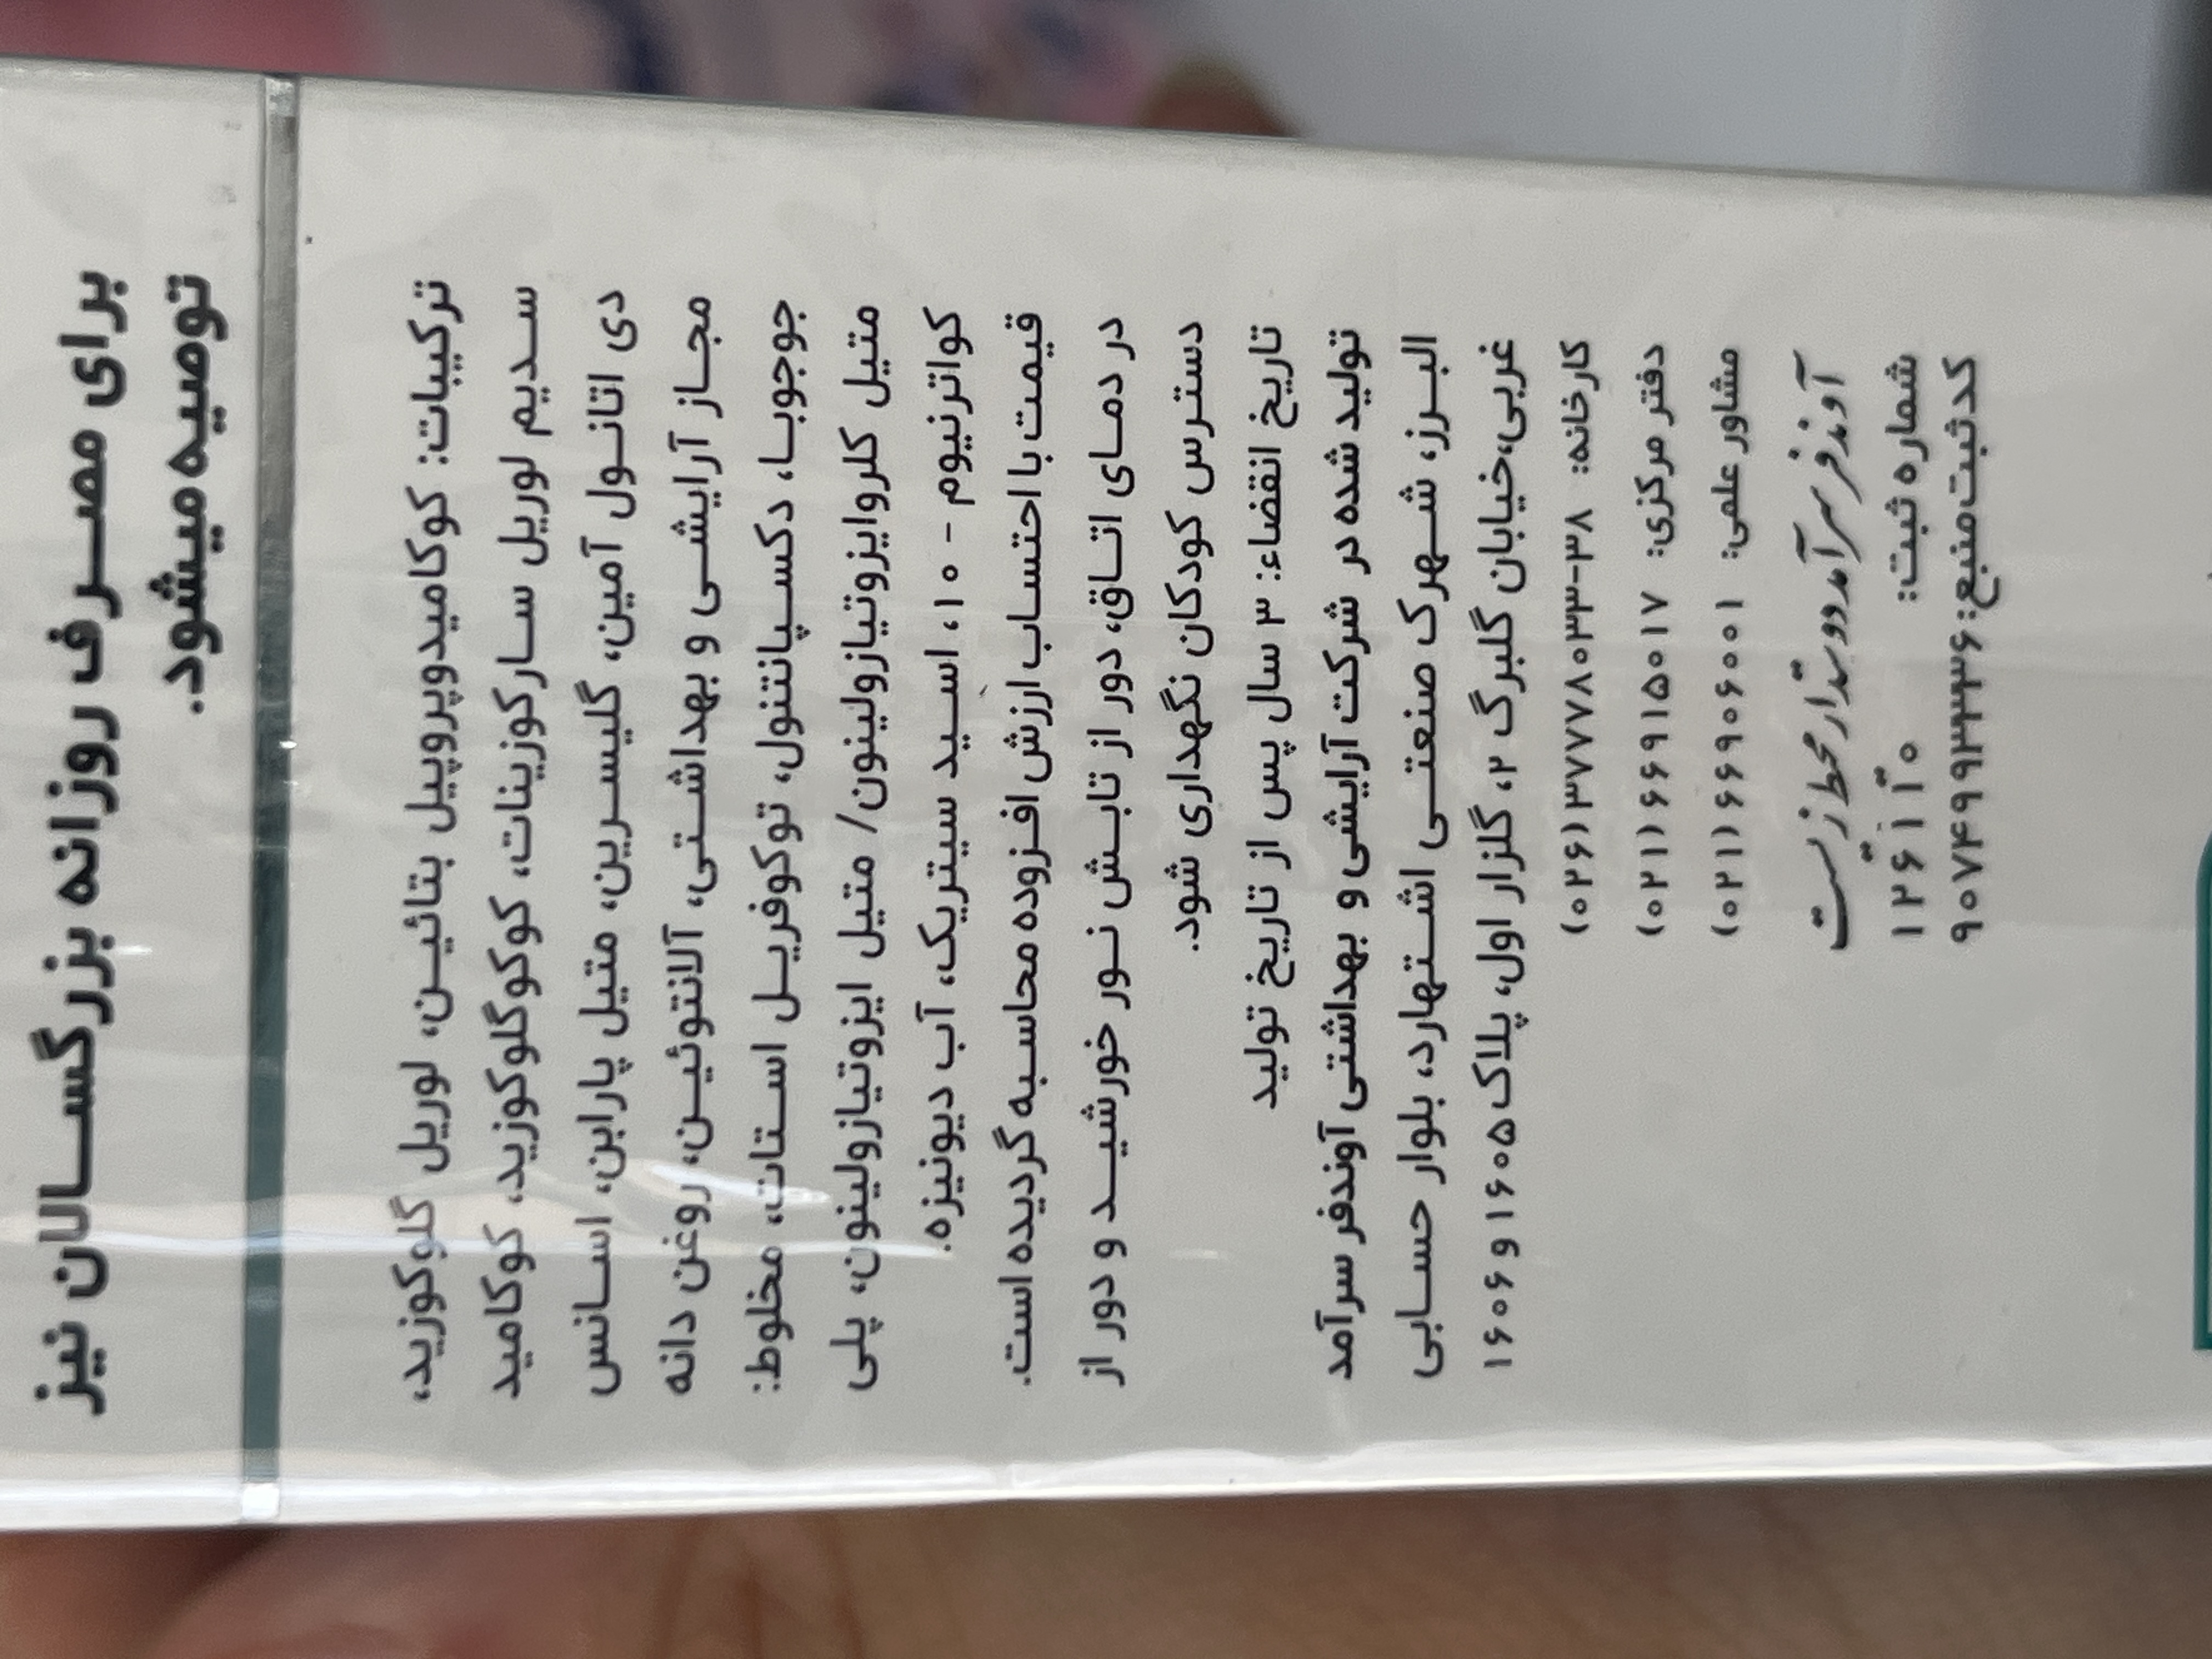 برای مصرف روزانه بزرگسالان نیز
توصیه میشود.
ترکیبات: کوکامیدوپروپیل بتائین، لوریل گلوکوزید،
سدیم لوریل سارکوزینات، کوکوگلوکوزید، کوکامید
دی اتانول آمین، گلیسرین، متیل پارابن، اسانس
مجاز آرایشی و بهداشتی، آلانتوئین، روغن دانه
جوجوبا، دکسپانتنول، توکوفریل استات، مخلوط:
متیل کلروایزوتیازولینون/ متیل ایزوتیازولینون، پلی
کواترنیوم - ۱۰، اسید سیتریک، آب دیونیزه.
قیمت با احتساب ارزش افزوده محاسبه گردیده است.
در دمای اتاق، دور از تابش نور خورشید و دور از
دسترس کودکان نگهداری شود.
تاریخ انقضاء: ۳ سال پس از تاریخ تولید
تولید شده در شرکت آرایشی و بهداشتی آوندفر سرآمد
البرز، شهرک صنعتی اشتهارد، بلوار حسابی
غربی،خیابان گلبرگ ۲، گلزار اول، پلاک ۱۶۰۵ و ۱۶۰۶
کارخانه: ۳۸-۳۷۷۷۸۰۳۳ (۰۲۶)
دفتر مرکزی: ۶۶۹۱۵۰۱۷ (۰۲۱)
مشاور علمی: ۶۶۹۰۶۰۰۱ (۰۲۱)
آوندفر سرآمد دوستدار محیط زیست
شماره ثبت: ۱۲۶۱۱۰
کد ثبت منبع: